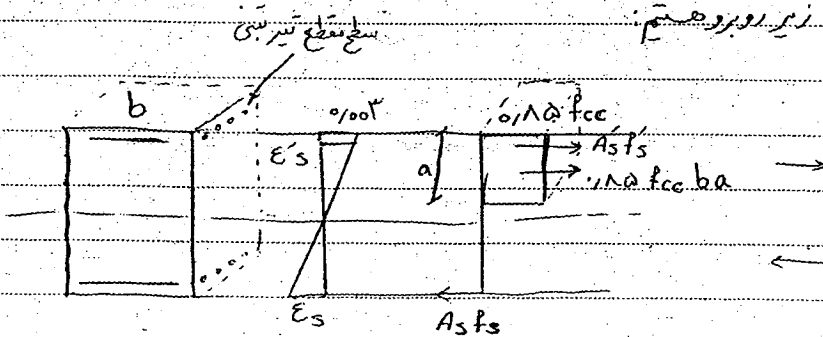 زیر روبرو هستیم:
سطح مقطع تیر بتنی
b
۰٫۰۰۳
ε's
a
۰٫۸۵ fcc
A's f's
۰٫۸۵ fcc ba
εs
As fs